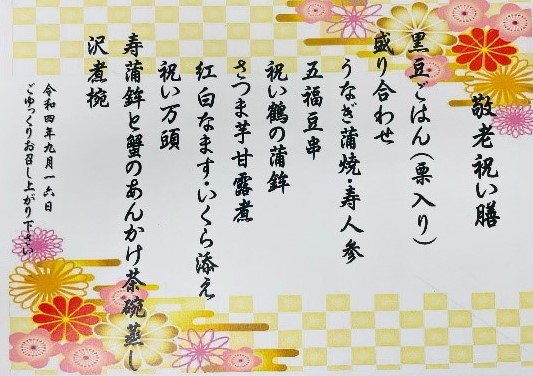 敬老祝い膳
黒豆ごはん(栗入り)
盛り合わせ
うなぎ蒲焼・寿人参
五福豆串
祝い鶴の蒲鉾
さつま芋甘露煮
紅白なます・いくら添え
祝い万頭
寿蒲鉾と蟹のあんかけ茶碗蒸し
沢煮椀
令和四年九月一六日
ごゆっくりお召し上がり下さい